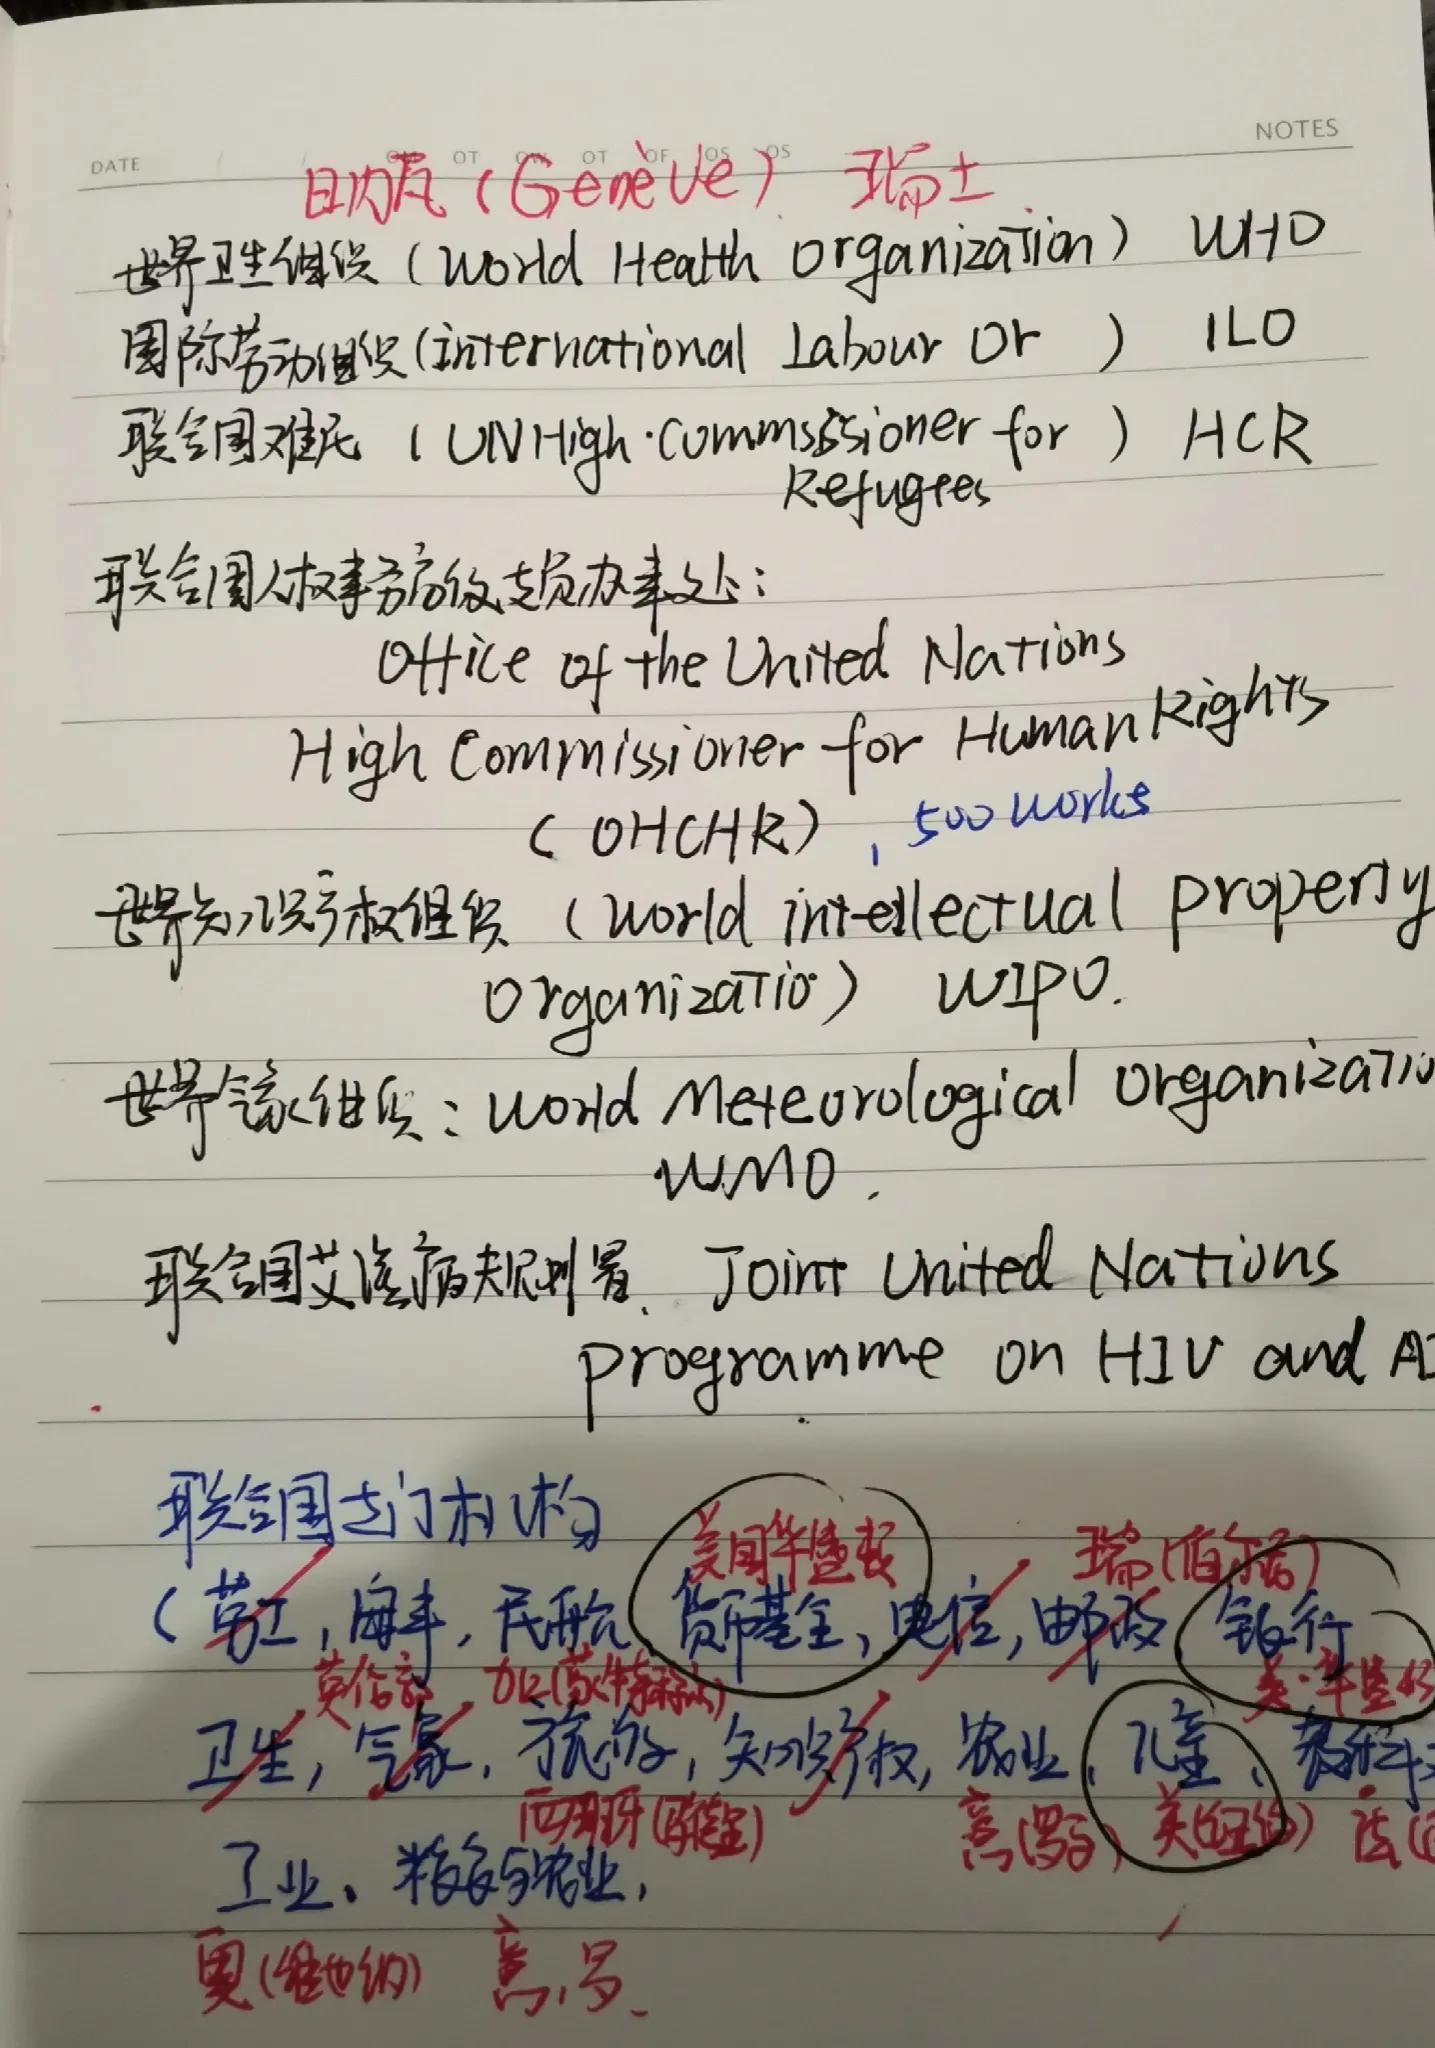 DATE / / OT OW OT OF OS OS
NOTES
日内瓦 (Genève) 瑞士
世界卫生组织 (World Health Organization) WHO
国际劳动组织 (international Labour Or ) ILO
联合国难民 (UN High·Commsssioner for ) HCR
Refugees
联合国人权事务高级专员办事处：
Office of the United Nations
High Commissioner for Human Rights
(OHCHR) , 500 works
世界知识产权组织 (World intellectual property
Organizatio) WIPO.
世界气象组织：World Meteorological Organizatio
WMO.
联合国艾滋病规划署. Joint United Nations
programme on HIV and AI
联合国专门机构
美国华盛顿 瑞(伯尔尼)
(劳工, 海事, 民航 货币基金, 电信, 邮政 银行
英伦敦 加(蒙特利尔) 美·华盛
卫生, 气象, 旅游, 知识产权, 农业, 儿童、教科文
西班牙(马德里) 意(罗马) 美(纽约) 法(
工业、粮食与农业,
奥(维也纳) 意,罗.